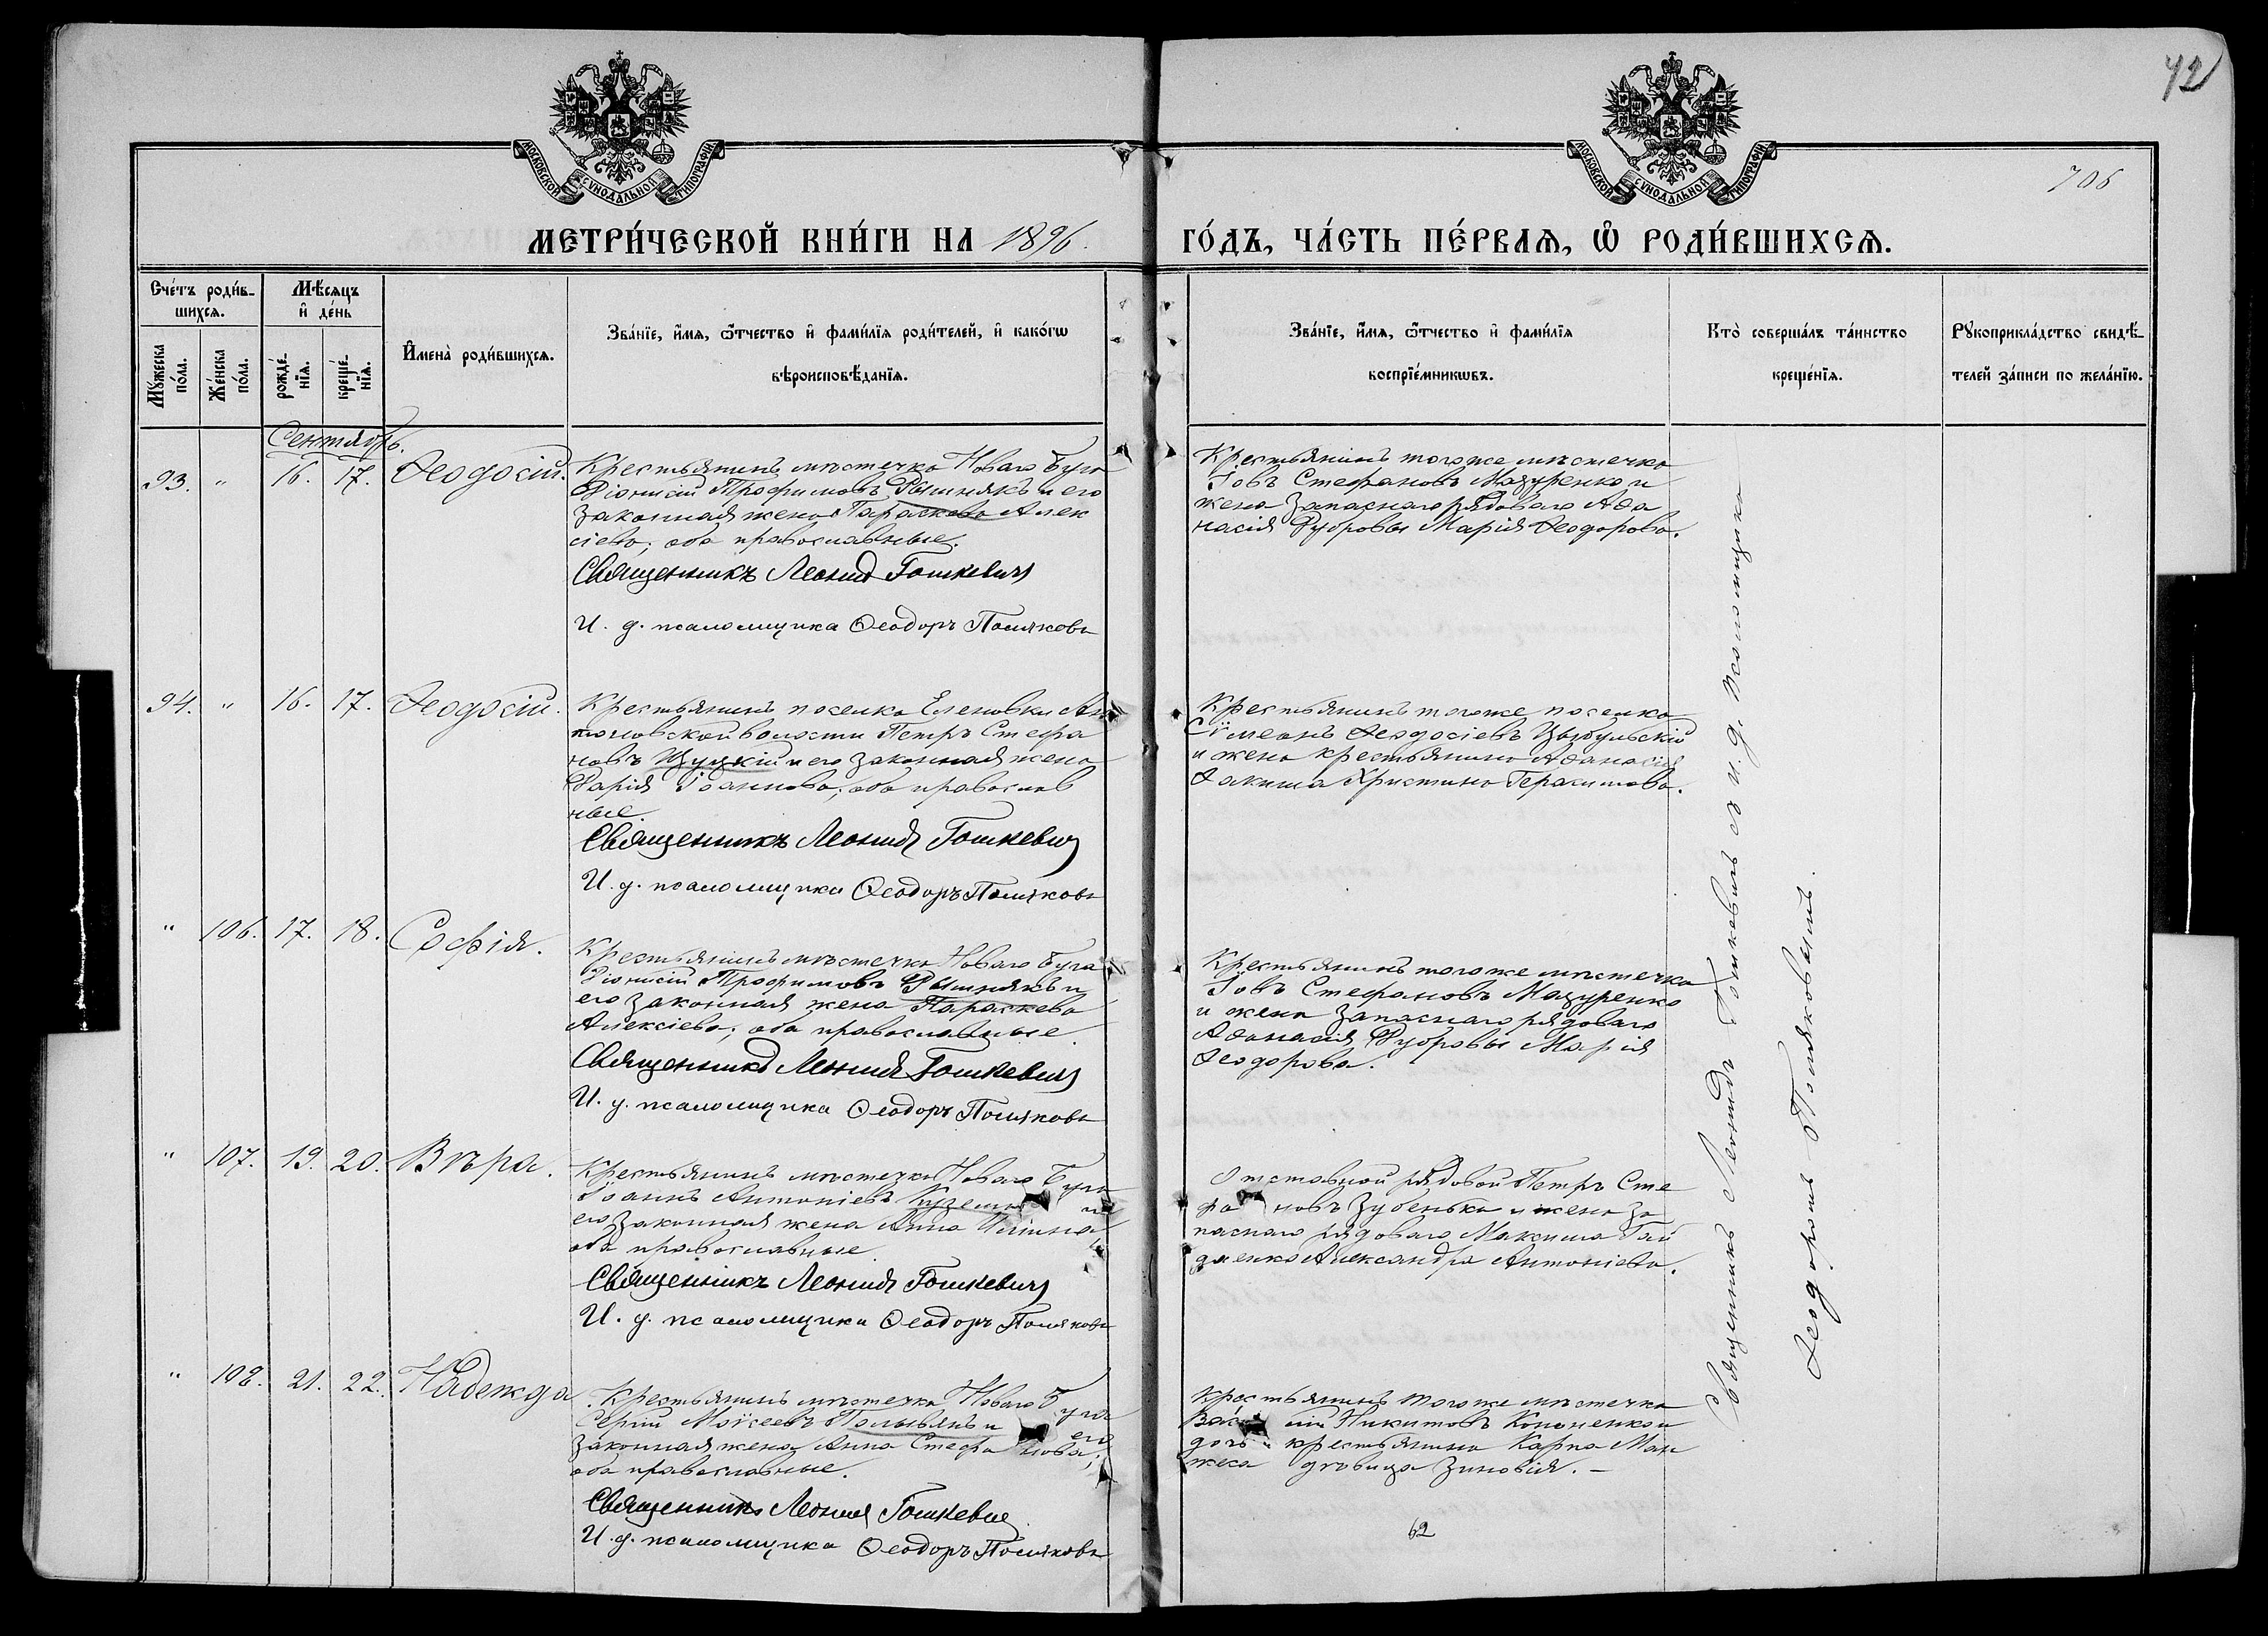 42
706
МОСКОВСКОЙ СѴНОДАЛЬНОЙ ТИПОГРАФІИ
МОСКОВСКОЙ СѴНОДАЛЬНОЙ ТИПОГРАФІИ
МЕТРИ́ЧЕСКОЙ КНИ́ГИ НА 1896.
ГО́ДЪ, ЧА́СТЬ ПЕ́РВАѦ, Ѽ РОДИ́ВШИХСѦ.
Сче́тъ роди́в-
шихсѧ.
Мѣ́сѧцъ
и҆ де́нь
Мꙋ́жеска
по́ла.
Же́нска
по́ла.
рожде́-
нїѧ.
креще́-
нїѧ.
И҆мена̀ роди́вшихсѧ.
Зва́нїе, и҆́мѧ, ѻ҆́тчество и҆ фами́лїѧ роди́телей, и҆ како́гѡ
вѣроисповѣ́данїѧ.
Зва́нїе, и҆́мѧ, ѻ҆́тчество и҆ фами́лїѧ
воспрїе́мникѡвъ.
Кто̀ соверша́лъ та́инство
креще́нїѧ.
Рꙋкоприкла́дство свидѣ́-
телей за́писи по жела́нїю.
Сентябрь.
93. " 16. 17. Ѳеодосій.
Крестьянинъ мѣстечка Новаго Буга
Діонисій Трофимовъ Рышнякъ и его
законная жена Параскева Алек
сіева; оба православные.
Священникъ Леонид Гошкевич
И. д. псаломщика Ѳеодоръ Поляковъ
Крестьянинъ того же мѣстечка
Іовъ Стефановъ Мазуренко и
жена запаснаго рядоваго Аѳа
насія Дубровы Марія Ѳеодорова.
94. " 16. 17. Ѳеодосій.
Крестьянинъ поселка Еленовки Ан
тоновской волости Петръ Стефа
новъ Щуцкій и его законная жена
Дарія Іоаннова; оба православ
ные.
Священникъ Леонид Гошкевич
И. д. псаломщика Ѳеодоръ Поляковъ
Крестьянинъ того же поселка
Сѵмеонъ Ѳеодосіевъ Цыбульскій
и жена крестьянина Аѳанасія
Христина Герасимова.
" 106. 17. 18. Софія.
Крестьянинъ мѣстечка Новаго Буга
Діонисій Трофимовъ Рышнякъ и
его законная жена Параскева
Алексіева; оба православные.
Священникъ Леонид Гошкевич
И. д. псаломщика Ѳеодоръ Поляковъ
Крестьянинъ того же мѣстечка
Іовъ Стефановъ Мазуренко
и жена запаснаго рядоваго
Аѳанасія Дубровы Марія
Ѳеодорова.
" 107. 19. 20. Вѣра.
Крестьянинъ мѣстечка Новаго Буга
Іоаннъ Антоніевъ и
его законная жена Анна
оба православные
Священникъ Леонид Гошкевич
И. д. псаломщика Ѳеодоръ Поляковъ
Отставной рядовой Петръ Сте
фановъ Зубенька и жена за
паснаго рядоваго Максима Гай
даенко Александра Антоніева.
" 108. 21. 22. Надежда
Крестьянинъ мѣстечка Новаго Буга
Сергій Моѵсеевъ и его
законная жена Анна Стефанова;
оба православные.
Священникъ Леонид Гошкевич
И. д. псаломщика Ѳеодоръ Поляковъ
Крестьянинъ того же мѣстечка
Василій Никитовъ Кононенко и
дочь крестьянина Карпа Ман
жеса дѣвица Зиновія. –
Священникъ Леонидъ Гошкевичъ съ и. д. псаломщика
Ѳеодоромъ Поляковымъ.
62